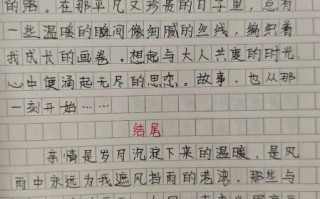 的洛。在那平凡又珍贵的日子里，总有
一些温暖的瞬间像细腻的丝线，编织着
我成长的画卷。想起与大人共度的时光，
心中便涌起无尽的思恋。故事，也从那
一刻开始……
结尾
亲情是岁月沉淀下来的温暖，是风
雨中永远为我遮风挡雨的港湾。那些与